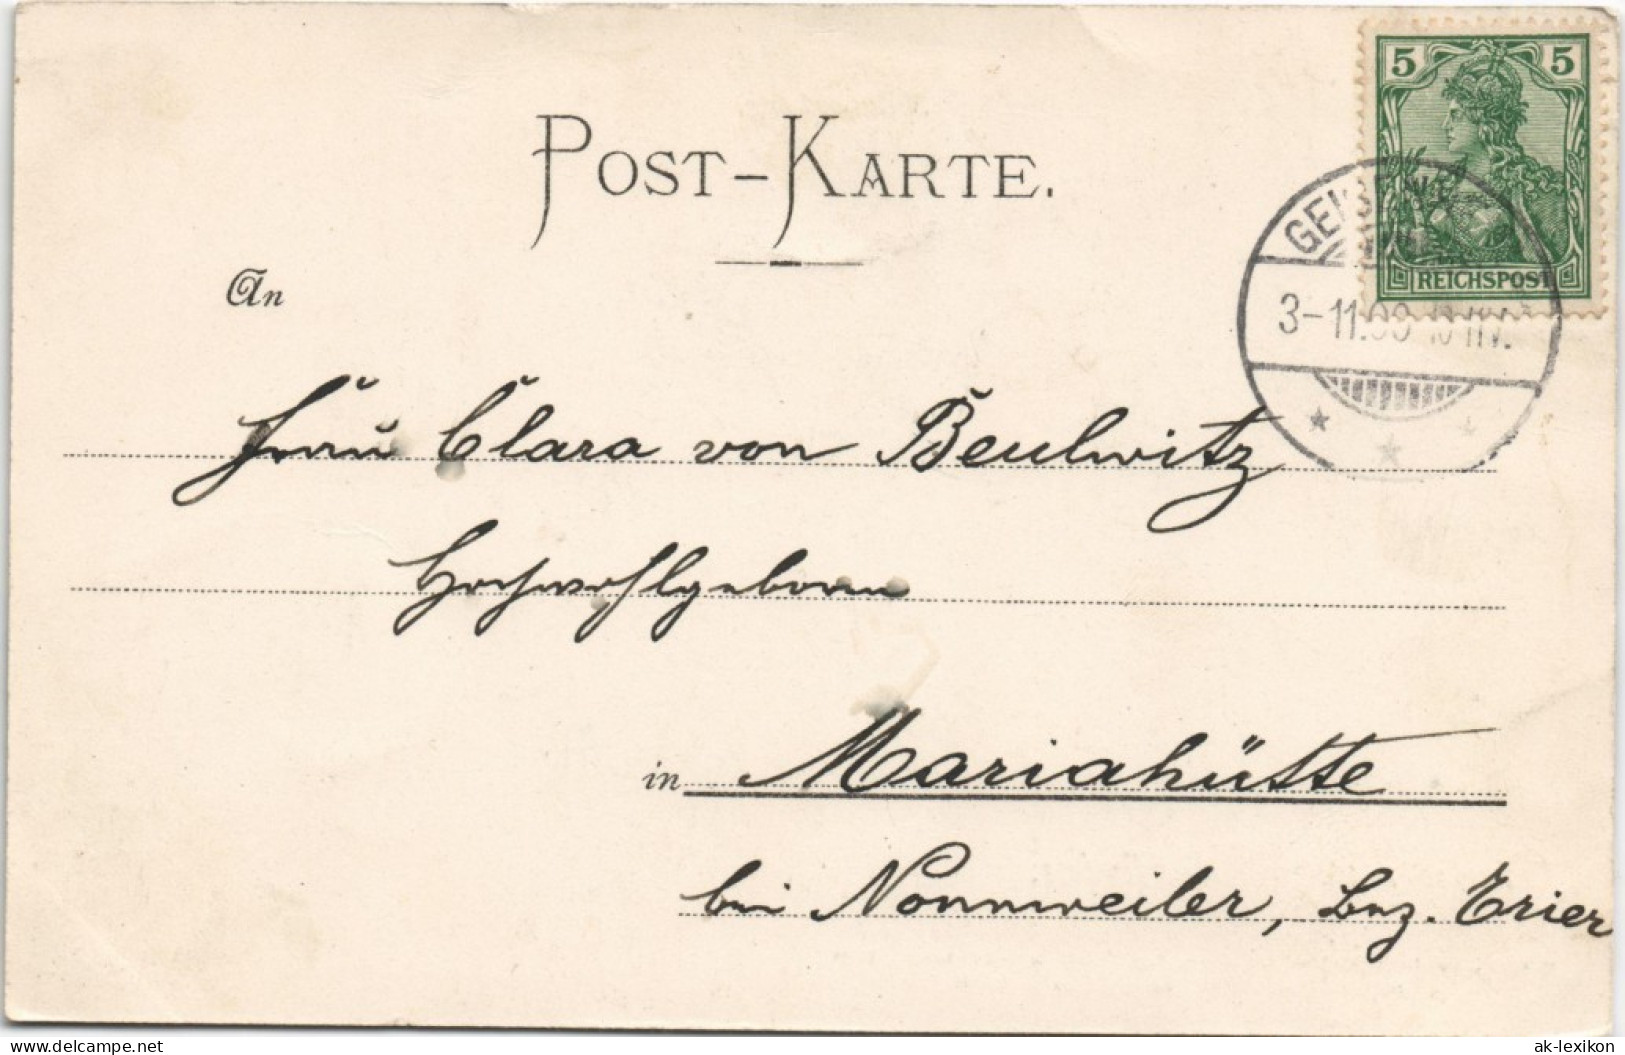 5 5
POST-KARTE.
REICHSPOST
3-11.99
An
Frau Clara von Beulwitz
Hochwohlgeboren
in Mariahütte
bei Nonnweiler, Bez. Trier
delcampe.net
ak-lexikon